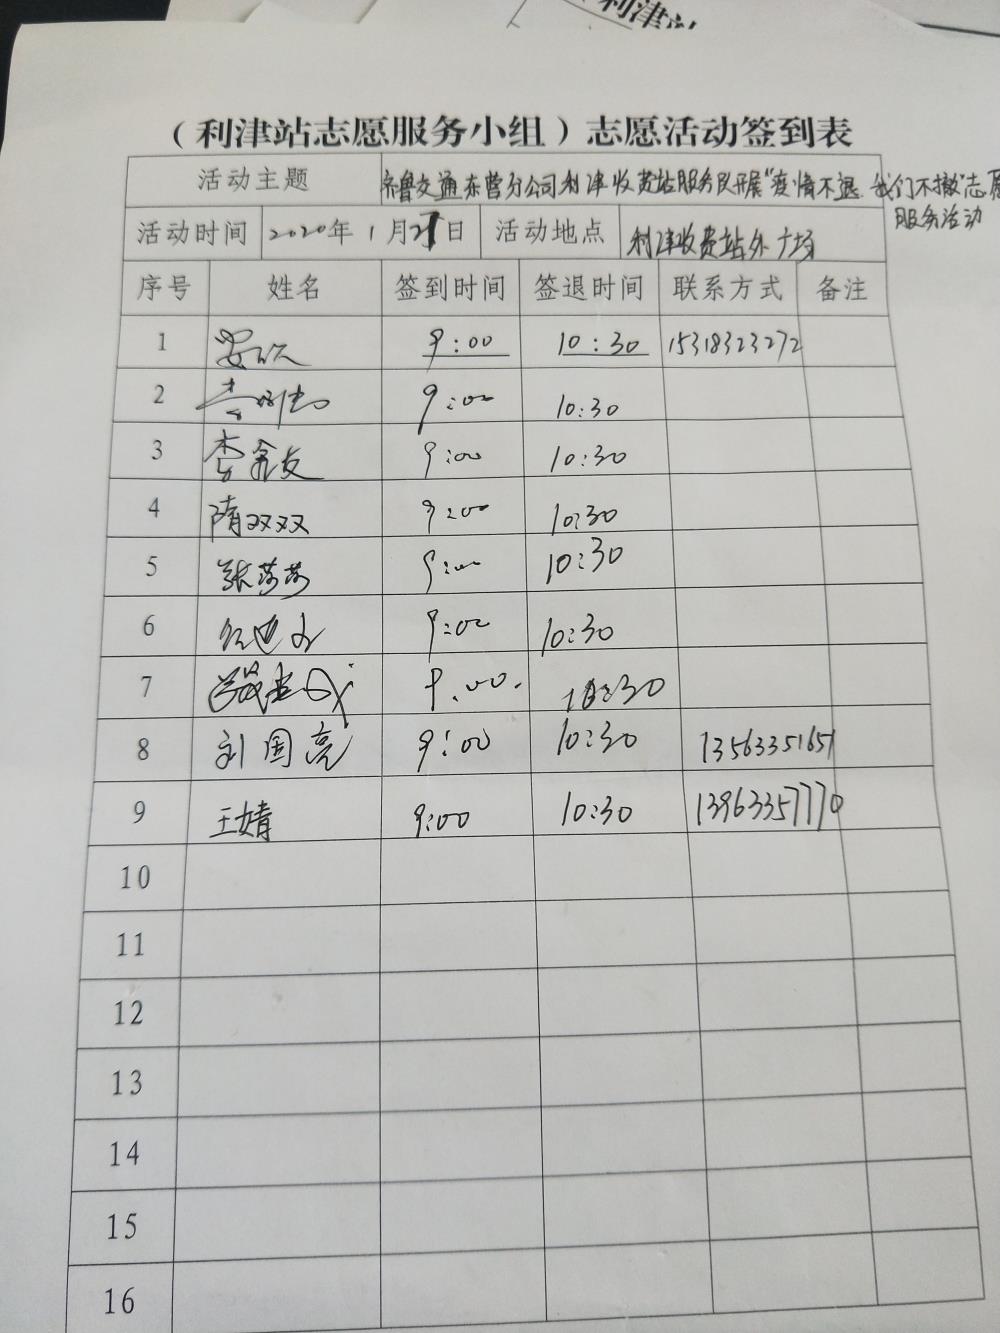 利津站
（利津站志愿服务小组）志愿活动签到表
活动主题 齐鲁交通东营分公司利津收费站服务队开展"疫情不退.我们不撤"志愿
服务活动
活动时间 2020年1月27日 活动地点 利津收费站外广场
序号 姓名 签到时间 签退时间 联系方式 备注
1 9:00 10:30 15318323272
2 9:00 10:30
3 李鑫友 9:00 10:30
4 隋双双 9:00 10:30
5 张莎莎 9:00 10:30
6 9:00 10:30
7 9.00. 10:30
8 刘国亮 9:00 10:30 13563351651
9 王婧 9:00 10:30 13963357770
10
11
12
13
14
15
16